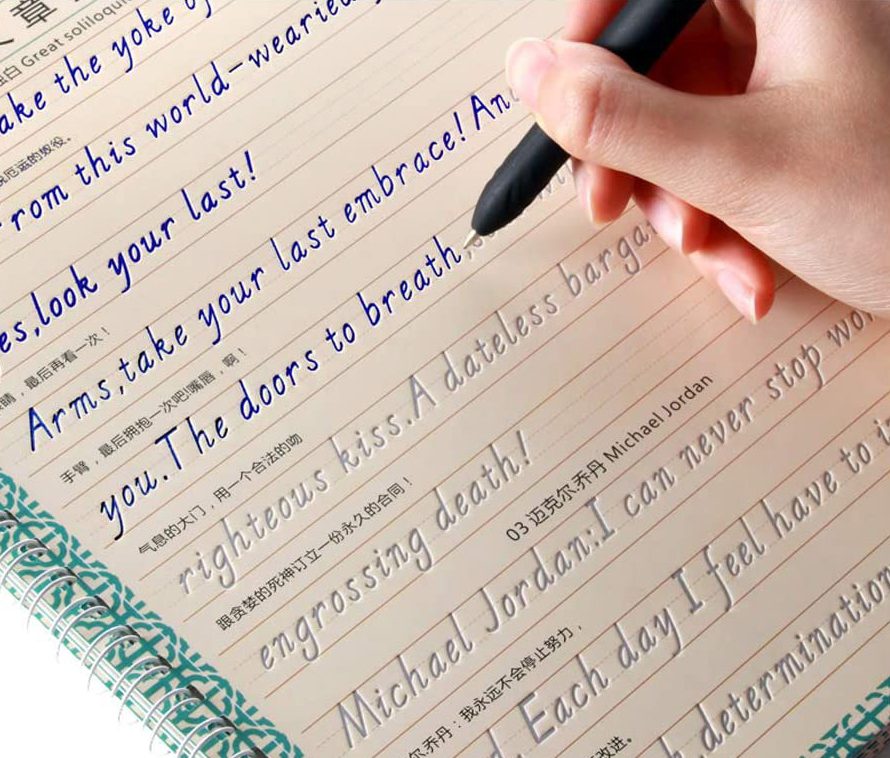 章
独白 Great soliloqu
ake the yoke o
厄运的奴役。
rom this world-wearied
es,look your last!
睛，最后再看一次！
Arms,take your last embrace! An
手臂，最后拥抱一次吧!嘴唇，啊！
you.The doors to breath,
气息的大门，用一个合法的吻
righteous kiss.A dateless barga
跟贪婪的死神订立一份永久的合同！
engrossing death!
03 迈克尔.乔丹 Michael Jordan
Michael Jordan:I can never stop wor
尔.乔丹：我永远不会停止努力，
. Each day I feel have to i
改进。
determination